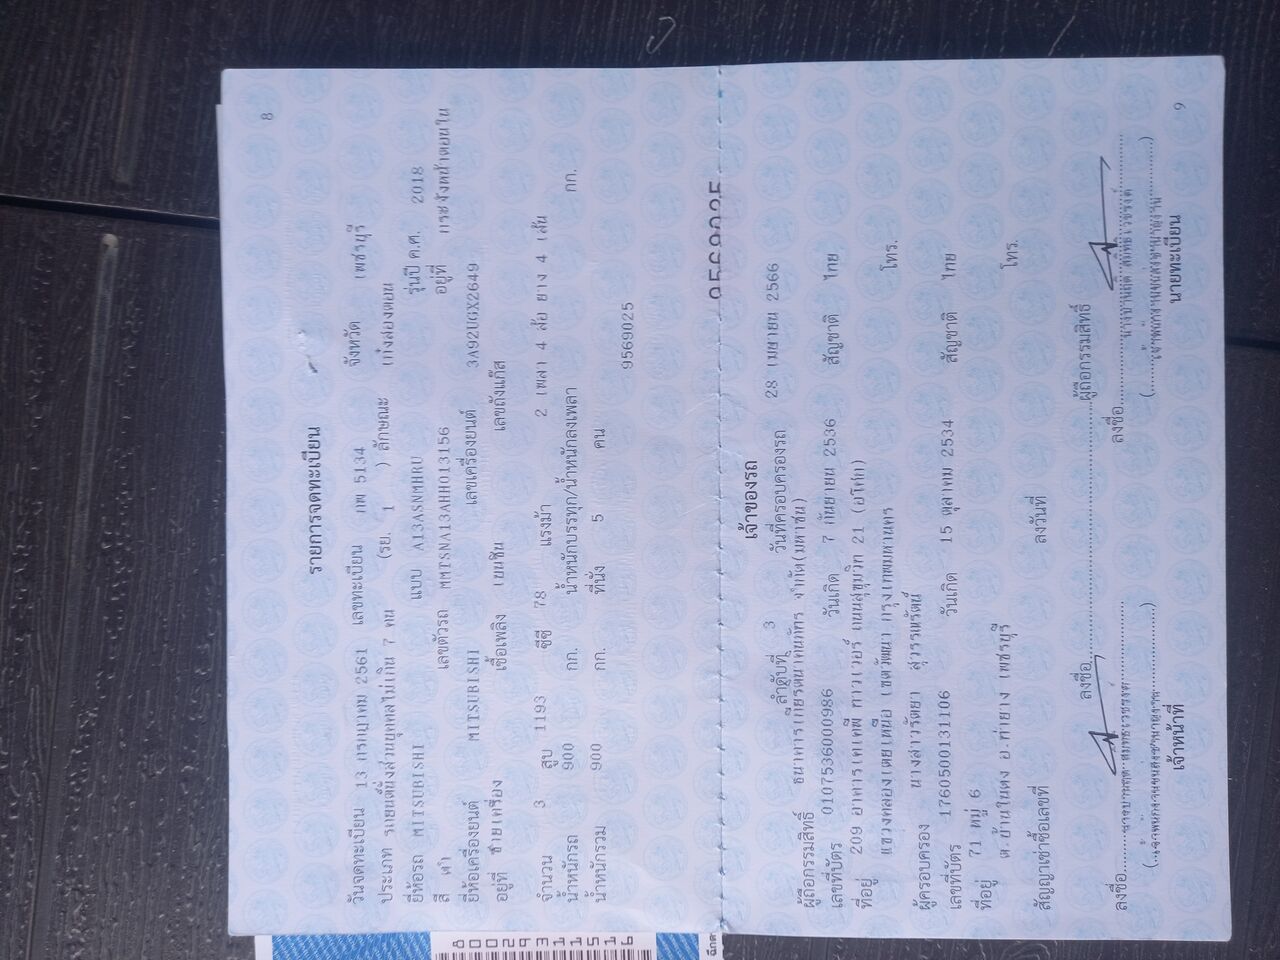 8
รายการจดทะเบียน
วันจดทะเบียน 13 กรกฎาคม 2561 เลขทะเบียน กพ 5134 จังหวัด เพชรบุรี
ประเภท รถยนต์นั่งส่วนบุคคลไม่เกิน 7 คน (รย. 1 ) ลักษณะ เก๋งสองตอน
ยี่ห้อรถ MITSUBISHI แบบ A13ASNMHRU รุ่นปี ค.ศ. 2018
สี ดำ เลขตัวรถ MMTSNA13AHH013156 อยู่ที่ แชสซีหน้าตอนใน
ยี่ห้อเครื่องยนต์ MITSUBISHI เลขเครื่องยนต์ 3A92UGX2649
อยู่ที่ ซ้ายเครื่อง เชื้อเพลิง เบนซิน เลขถังแก๊ส
จำนวน 3 สูบ 1193 ซีซี 78 แรงม้า 2 เพลา 4 ล้อ ยาง 4 เส้น
น้ำหนักรถ 900 กก. น้ำหนักบรรทุก/น้ำหนักลงเพลา กก.
น้ำหนักรวม 900 กก. ที่นั่ง 5 คน
9569025
9569025
เจ้าของรถ
ลำดับที่ 3 วันที่ครอบครองรถ 28 เมษายน 2566
ผู้ถือกรรมสิทธิ์ ธนาคารเกียรตินาคินภัทร จำกัด(มหาชน)
เลขที่บัตร 0107536000986 วันเกิด 7 กันยายน 2536 สัญชาติ ไทย
ที่อยู่ 209 อาคารเคเคพี ทาวเวอร์ ถนนสุขุมวิท 21 (อโศก)
แขวงคลองเตยเหนือ เขตวัฒนา กรุงเทพมหานคร โทร.
ผู้ครอบครอง นางสาวรัตยา สุวรรณรัตน์
เลขที่บัตร 1760500131106 วันเกิด 15 ตุลาคม 2534 สัญชาติ ไทย
ที่อยู่ 71 หมู่ 6
ต.บ้านในดง อ.ท่ายาง เพชรบุรี โทร.
สัญญาเช่าซื้อเลขที่ ลงวันที่
ลงชื่อ ผู้ถือกรรมสิทธิ์
ลงชื่อ
ลงชื่อ
เจ้าหน้าที่
นายทะเบียน
9